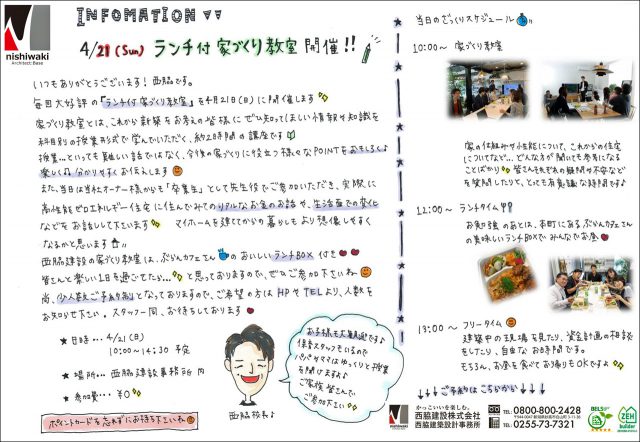 INFOMATION
nishiwaki
Architect Base
4/21(Sun) ランチ付 家づくり教室 開催!!
いつもありがとうございます! 西脇です。
毎回大好評の「ランチ付家づくり教室」を4月21日(日)に開催します
家づくり教室とは、これから新築をお考えの皆様にぜひ知ってほしい情報や知識を
科目別の授業形式で学んでいただく、約2時間の講座です
授業…といっても難しい話ではなく、今後の家づくりに役立つ様々なPOINTをおもしろく♪
楽しく♫分かりやすくお伝えします
また、当日は当社オーナー様からも「卒業生」として先生役でご参加いただき、実際に
高性能ゼロエネルギー住宅に住んでみてのリアルなお金のお話や、生活面での変化
などをお話して下さいます マイホームを建ててからの暮らしもより想像しやすく
なるかと思います
西脇建設の家づくり教室は、ぷらんカフェさんのおいしいランチBOX付き
皆さんと楽しい1日を過ごせたら…と思っておりますので、ぜひご参加下さいね
尚、少人数ご予約制となっておりますので、ご希望の方はHPやTELより、人数を
お知らせ下さい。スタッフ一同、お待ちしております
★ 日時… 4/21(日)
10:00〜14:30 予定
★ 場所… 西脇建設事務所 内
★ 参加費… ¥0
ポイントカードを忘れずにお持ち下さいね
西脇校長♪
お子様も大歓迎です♪
保育スタッフもいるので
パパやママはゆっくりと授業
を聞けますよ♪
ご家族皆さんで
ご参加下さい
当日のざっくりスケジュール
10:00〜 家づくり教室
家の仕組みや性能について、これからの住宅
についてなど…どんな方が聞いても参考になる
ことばかり 皆さんそれぞれの疑問や不安など
を質問したりと、とっても有意義な時間です♪
12:00〜 ランチタイム
お勉強のあとは、市町にあるぷらんカフェさん
の美味しいランチBOXでみんなでお昼
13:00〜 フリータイム
建築中の現場を見たり、資金計画の相談
をしたり、自由なお時間です。
もちろん、お昼を食べてお帰りもOKですよ
↓↓↓ ご予約はこちらから ↓↓↓
nishiwaki
かっこいいを楽しむ。
西脇建設株式会社
西脇建築設計事務所
TEL 0800-800-2428
TEL 0255-73-7321
BELS
ZEH
builder